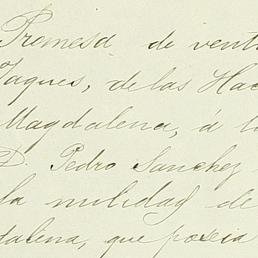 Promesa de vent
Jaques, de las Hac
Magdalena, á l
D. Pedro Sanchez
la mitad de
dalena, que poseia